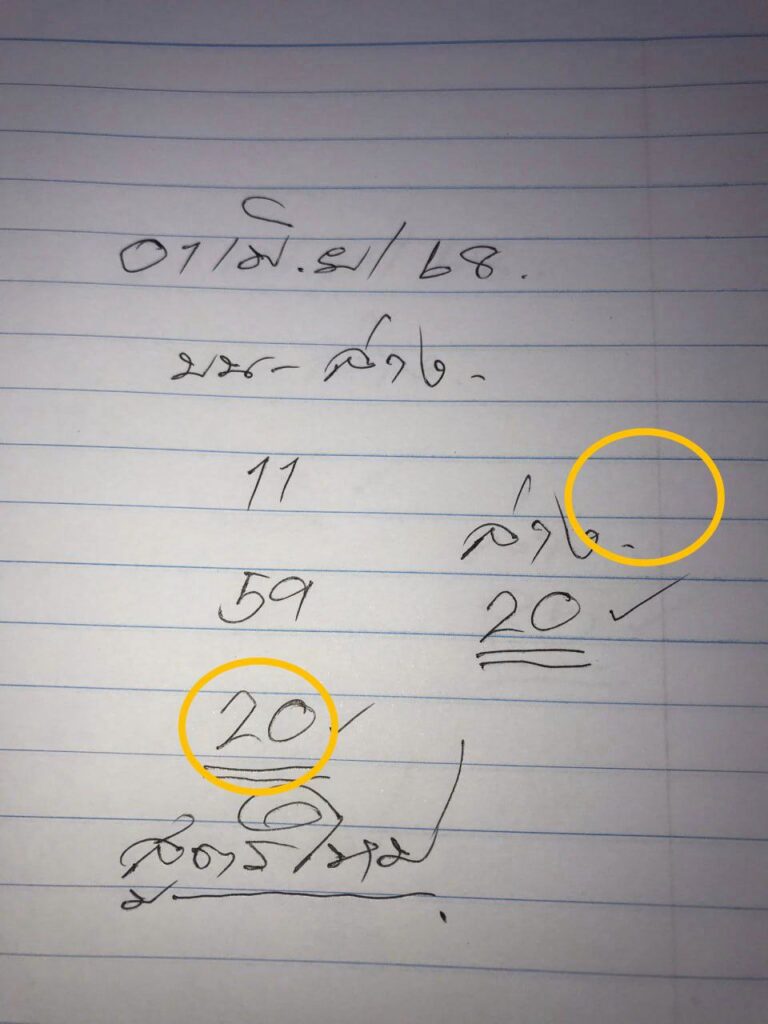 01/มิ.ย/68.
บน-ล่าง.
11
ล่าง.
59
20
20
สูตรใหม่